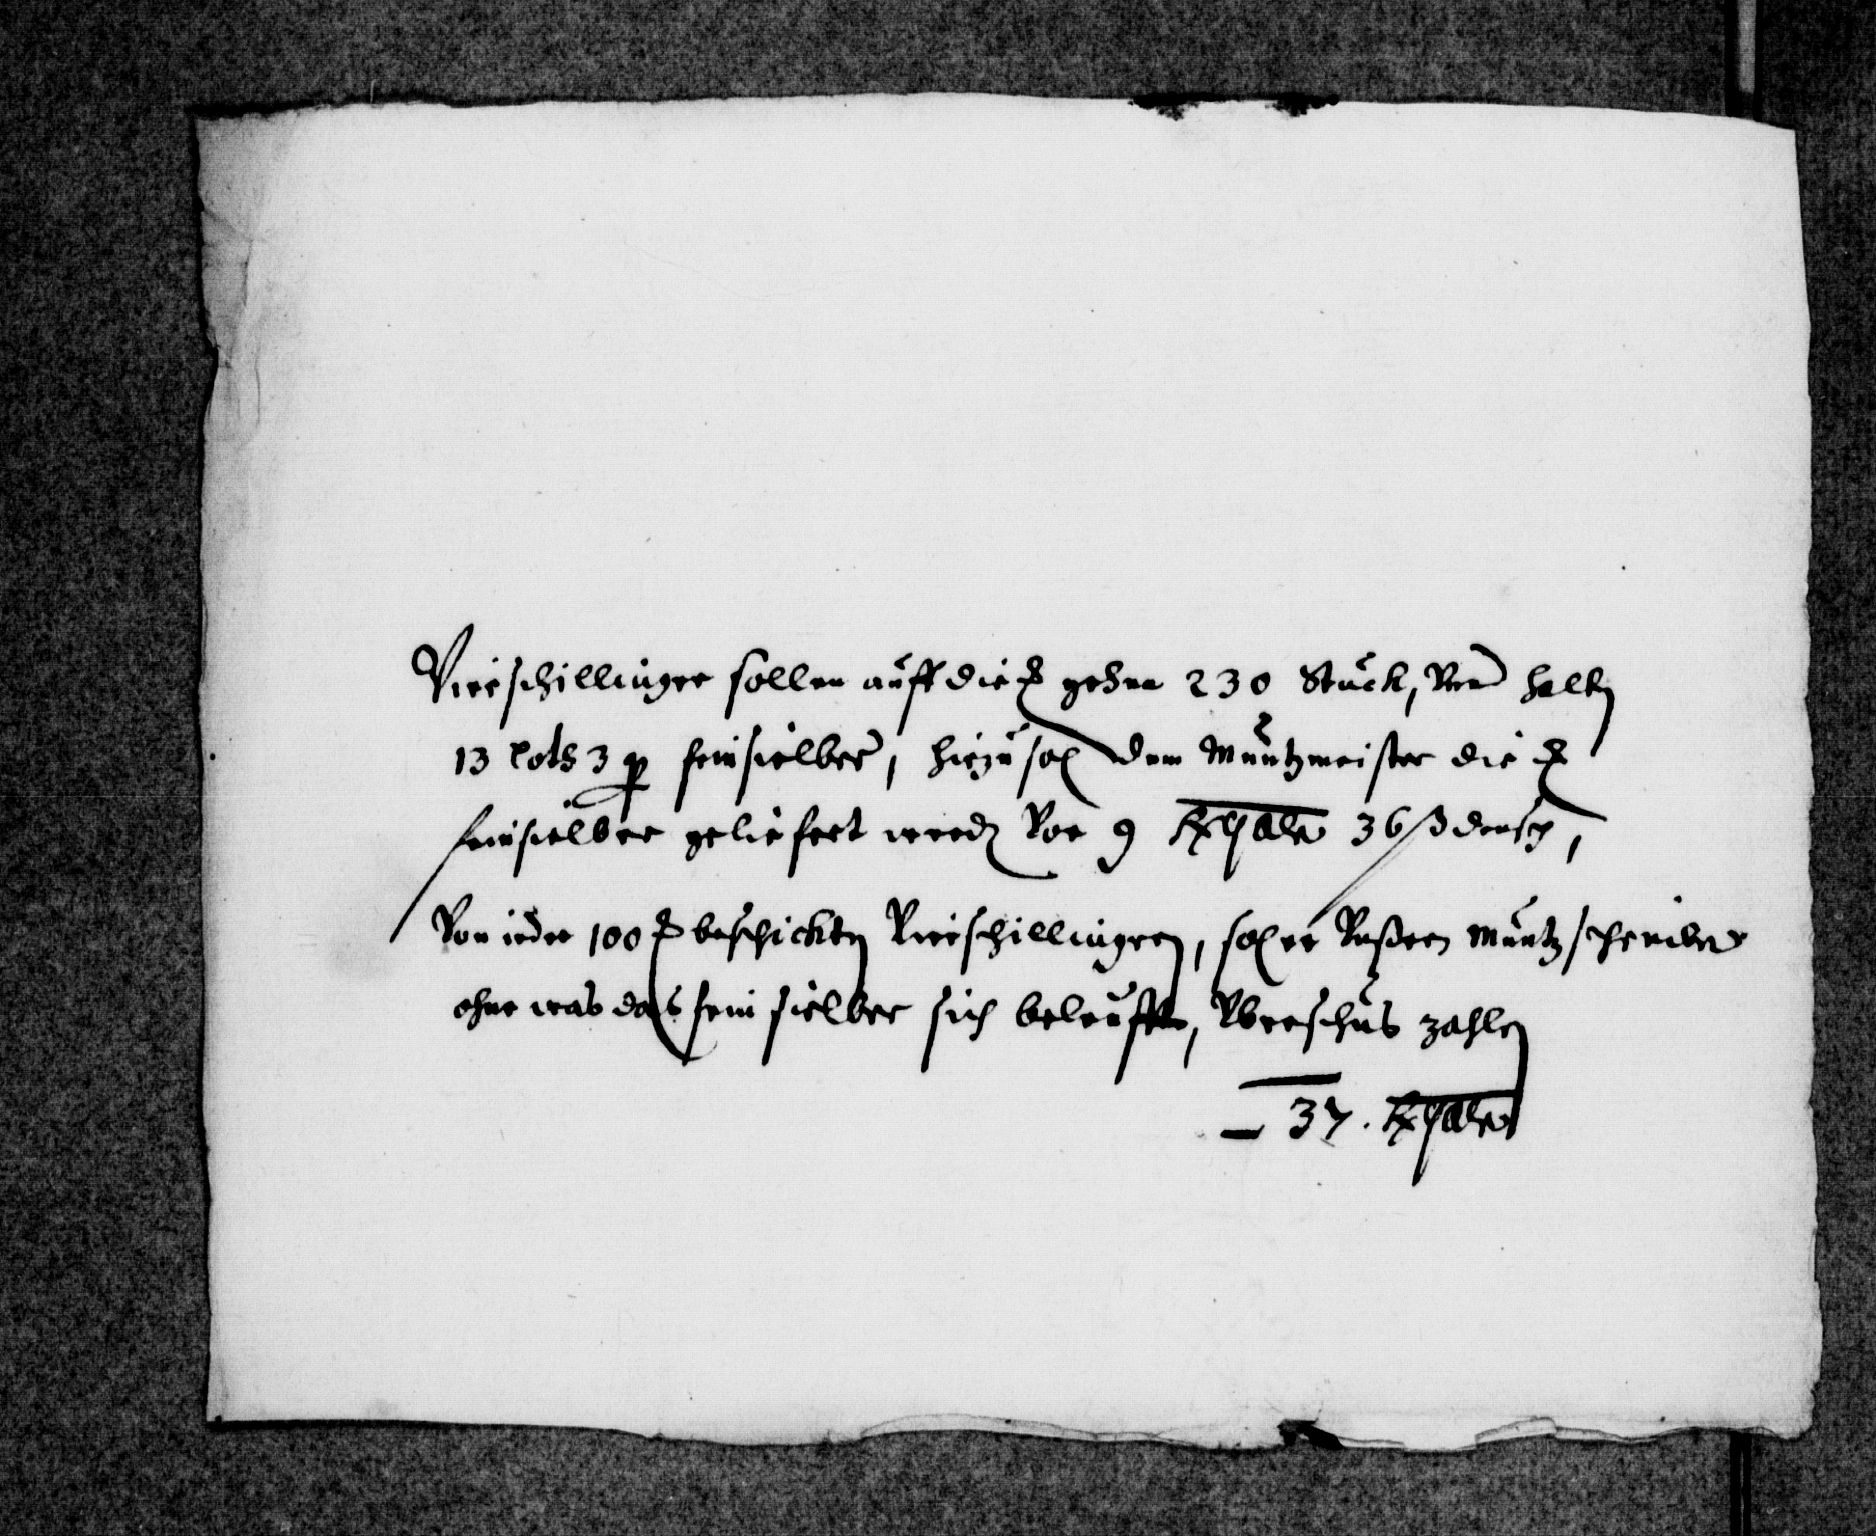 Vierschillinger sollen auff die ℳ gehen 230 Stuck, Vnd halten
13 Loth 3 q feinsielber, hiezu sol dem Muntzmeister die ℳ
feinsielber geliefert werden Vor 9 Rxthaler 36 ß densch,
Von ieder 100 ℳ beschickten Vierschillingeren, sol er Vnßeren Muntzschreiber
ohne was das feinsielber sich beleufft, Vberschus zahlen
37. Rxthaler